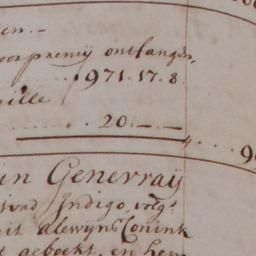 en.
oor premij ontfangen,
971.17.8
ille
20.—.—
9
in Generraij
Indigo, volgs.
it alewijns Conink
t geboekt, en hem